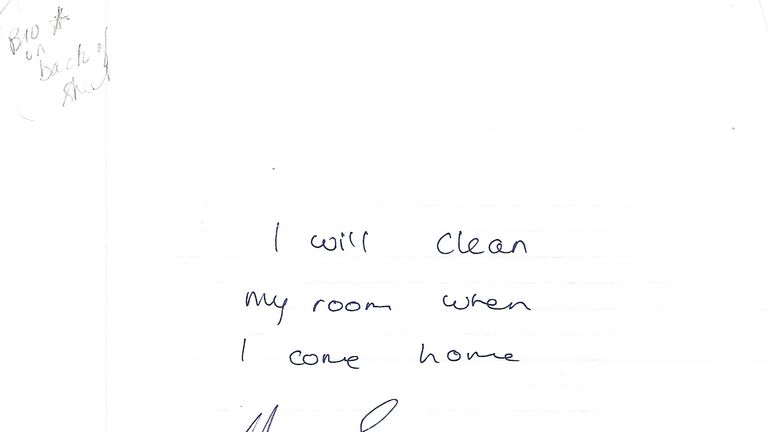 BIO #
on
back of
sheet
I will clean
my room when
I come home